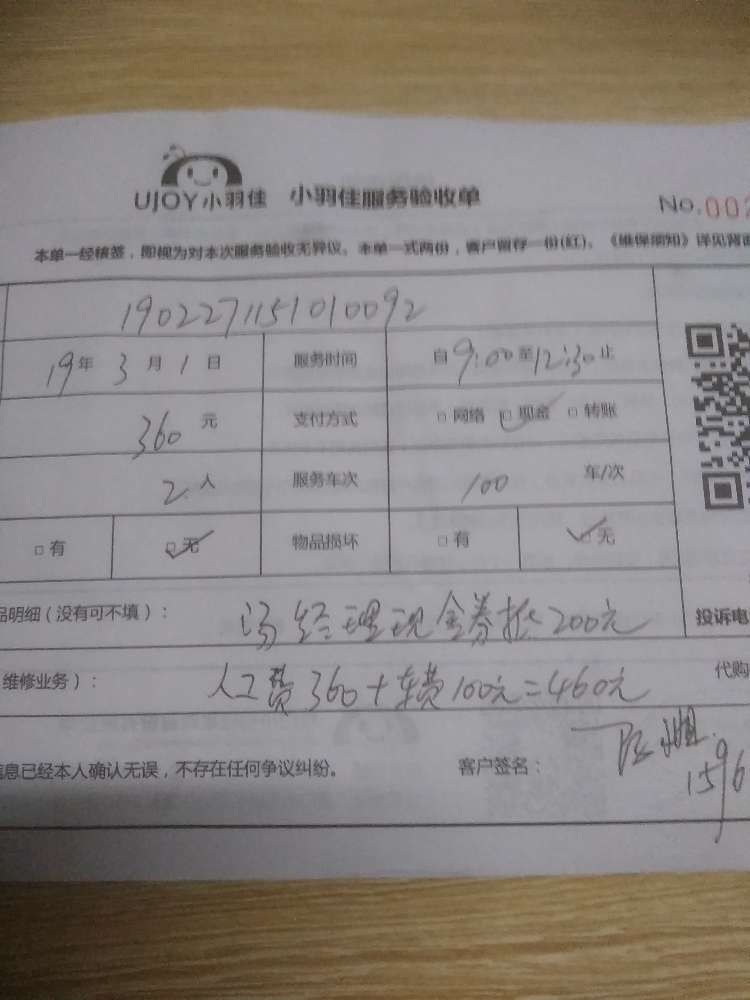 UJOY小羽佳 小羽佳服务验收单
No.002
本单一经核签,即视为对本次服务验收无异议。本单一式两份,客户留存一份(红)。《维保须知》详见背面
1902271151010092
19年3月1日 服务时间 自9:00至12:30止
360元 支付方式 □网络 □现金 □转账
2人 服务车次 100 车/次
□有 □无 物品损坏 □有 □无
品明细(没有可不填): 汤经理现金券抵200元 投诉电
维修业务): 人工费360+车费100元=460元 代购
信息已经本人确认无误,不存在任何争议纠纷。 客户签名: